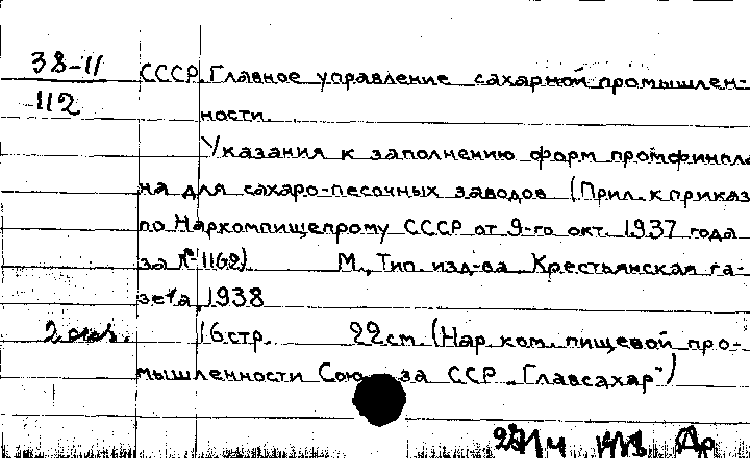 38-11
112
СССР. Главное управление сахарной промышлен-
ности.
Указания к заполнению форм промфинпла
на для сахаро-песочных заводов (Прил. к приказ
по Наркомпищепрому СССР от 9-го окт. 1937 года
за № 1162) М., Тип. изд-ва "Крестьянская га-
зета", 1938
2 экз. 16 стр. 22 см. (Нар. ком. пищевой про-
мышленности Союза ССР "Главсахар")